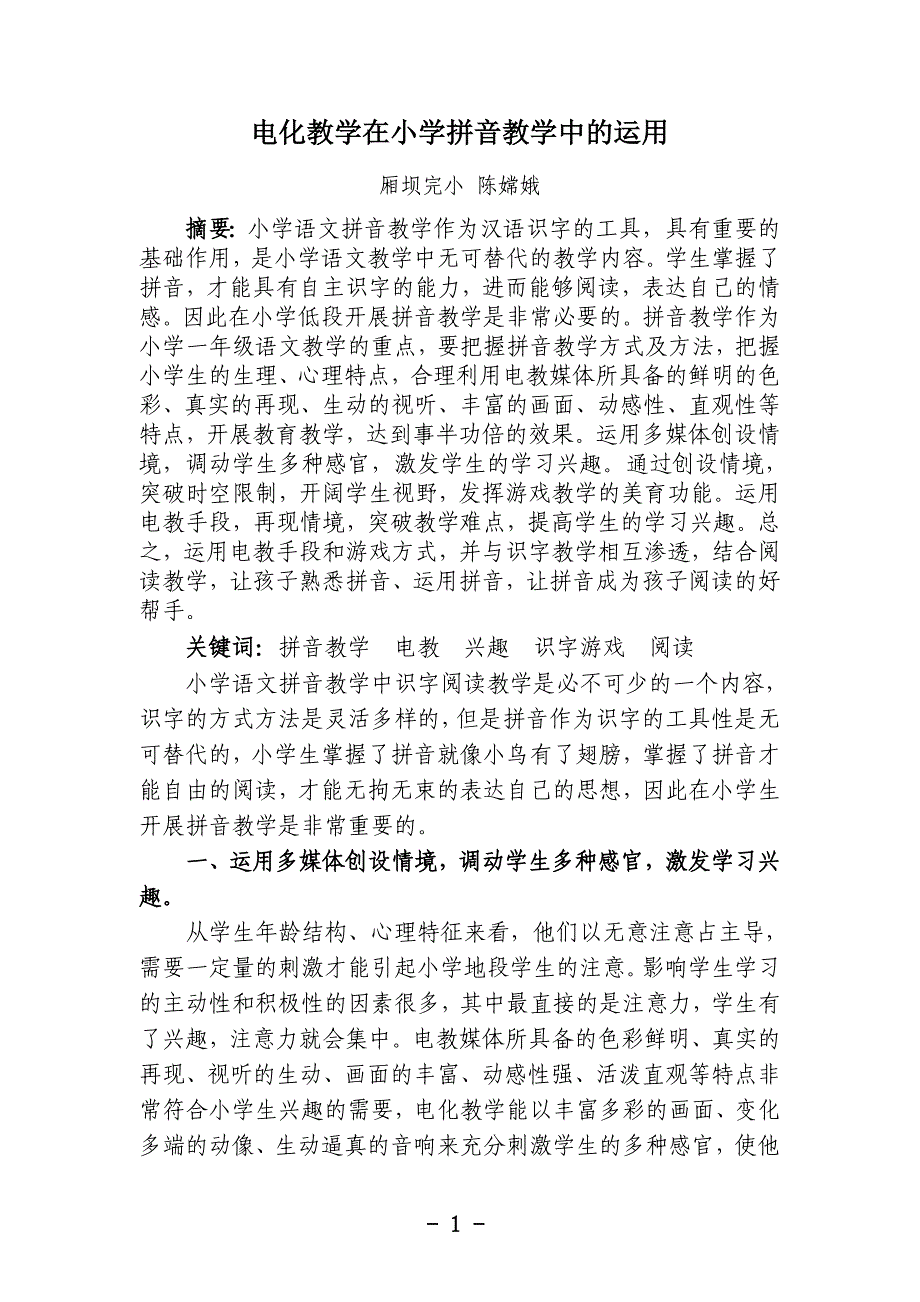 电化教学在小学拼音教学中的运用
厢坝完小 陈嫦娥
摘要: 小学语文拼音教学作为汉语识字的工具，具有重要的
基础作用，是小学语文教学中无可替代的教学内容。学生掌握了
拼音，才能具有自主识字的能力，进而能够阅读，表达自己的情
感。因此在小学低段开展拼音教学是非常必要的。拼音教学作为
小学一年级语文教学的重点，要把握拼音教学方式及方法，把握
小学生的生理、心理特点，合理利用电教媒体所具备的鲜明的色
彩、真实的再现、生动的视听、丰富的画面、动感性、直观性等
特点，开展教育教学，达到事半功倍的效果。运用多媒体创设情
境，调动学生多种感官，激发学生的学习兴趣。通过创设情境，
突破时空限制，开阔学生视野，发挥游戏教学的美育功能。运用
电教手段，再现情境，突破教学难点，提高学生的学习兴趣。总
之，运用电教手段和游戏方式，并与识字教学相互渗透，结合阅
读教学，让孩子熟悉拼音、运用拼音，让拼音成为孩子阅读的好
帮手。
关键词: 拼音教学 电教 兴趣 识字游戏 阅读
小学语文拼音教学中识字阅读教学是必不可少的一个内容，
识字的方式方法是灵活多样的，但是拼音作为识字的工具性是无
可替代的，小学生掌握了拼音就像小鸟有了翅膀，掌握了拼音才
能自由的阅读，才能无拘无束的表达自己的思想，因此在小学生
开展拼音教学是非常重要的。
一、运用多媒体创设情境，调动学生多种感官，激发学习兴
趣。
从学生年龄结构、心理特征来看，他们以无意注意占主导，
需要一定量的刺激才能引起小学地段学生的注意。影响学生学习
的主动性和积极性的因素很多，其中最直接的是注意力，学生有
了兴趣，注意力就会集中。电教媒体所具备的色彩鲜明、真实的
再现、视听的生动、画面的丰富、动感性强、活泼直观等特点非
常符合小学生兴趣的需要，电化教学能以丰富多彩的画面、变化
多端的动像、生动逼真的音响来充分刺激学生的多种感官，使他
- 1 -